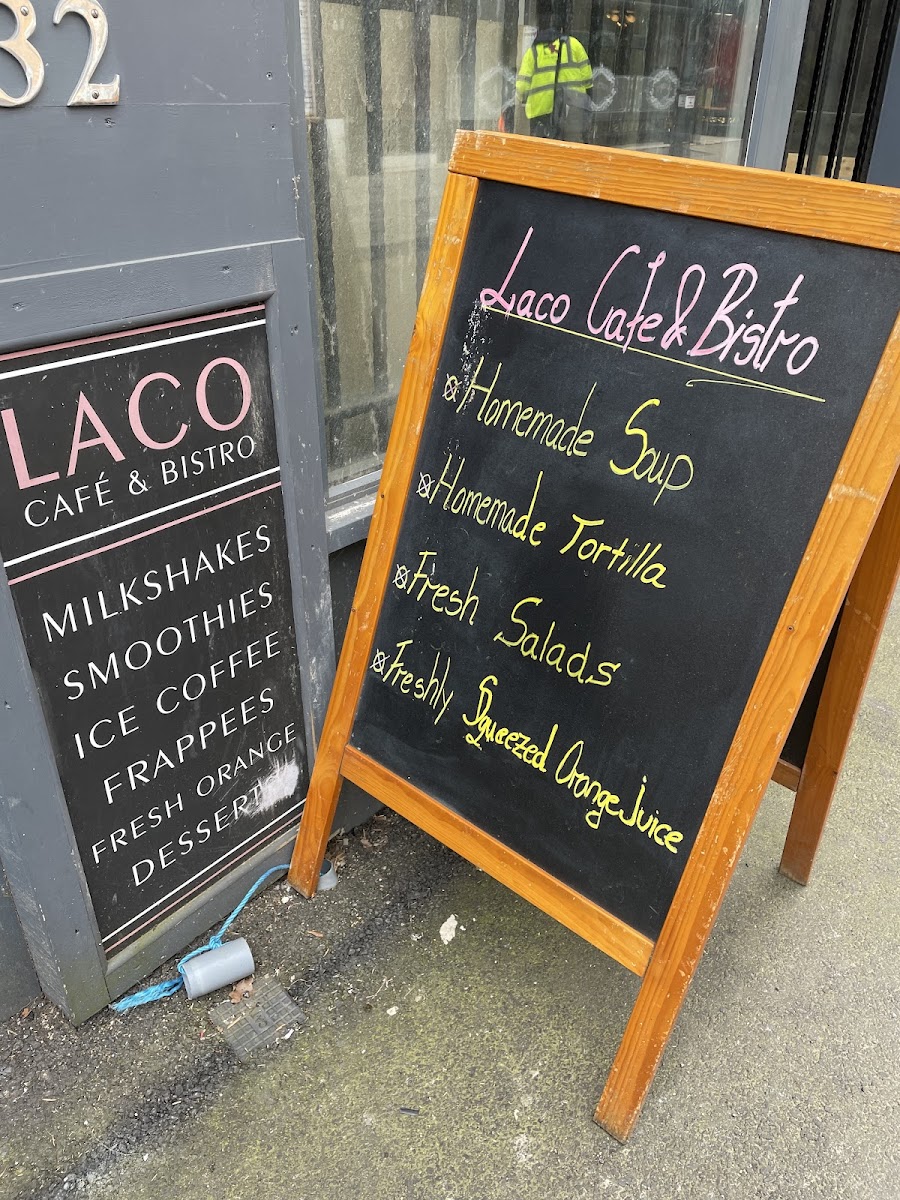 32
LACO
CAFÉ & BISTRO
MILKSHAKES
SMOOTHIES
ICE COFFEE
FRAPPEES
FRESH ORANGE
DESSERT
Laco Cafe & Bistro
Homemade Soup
Homemade Tortilla
Fresh Salads
Freshly Squeezed Orange Juice